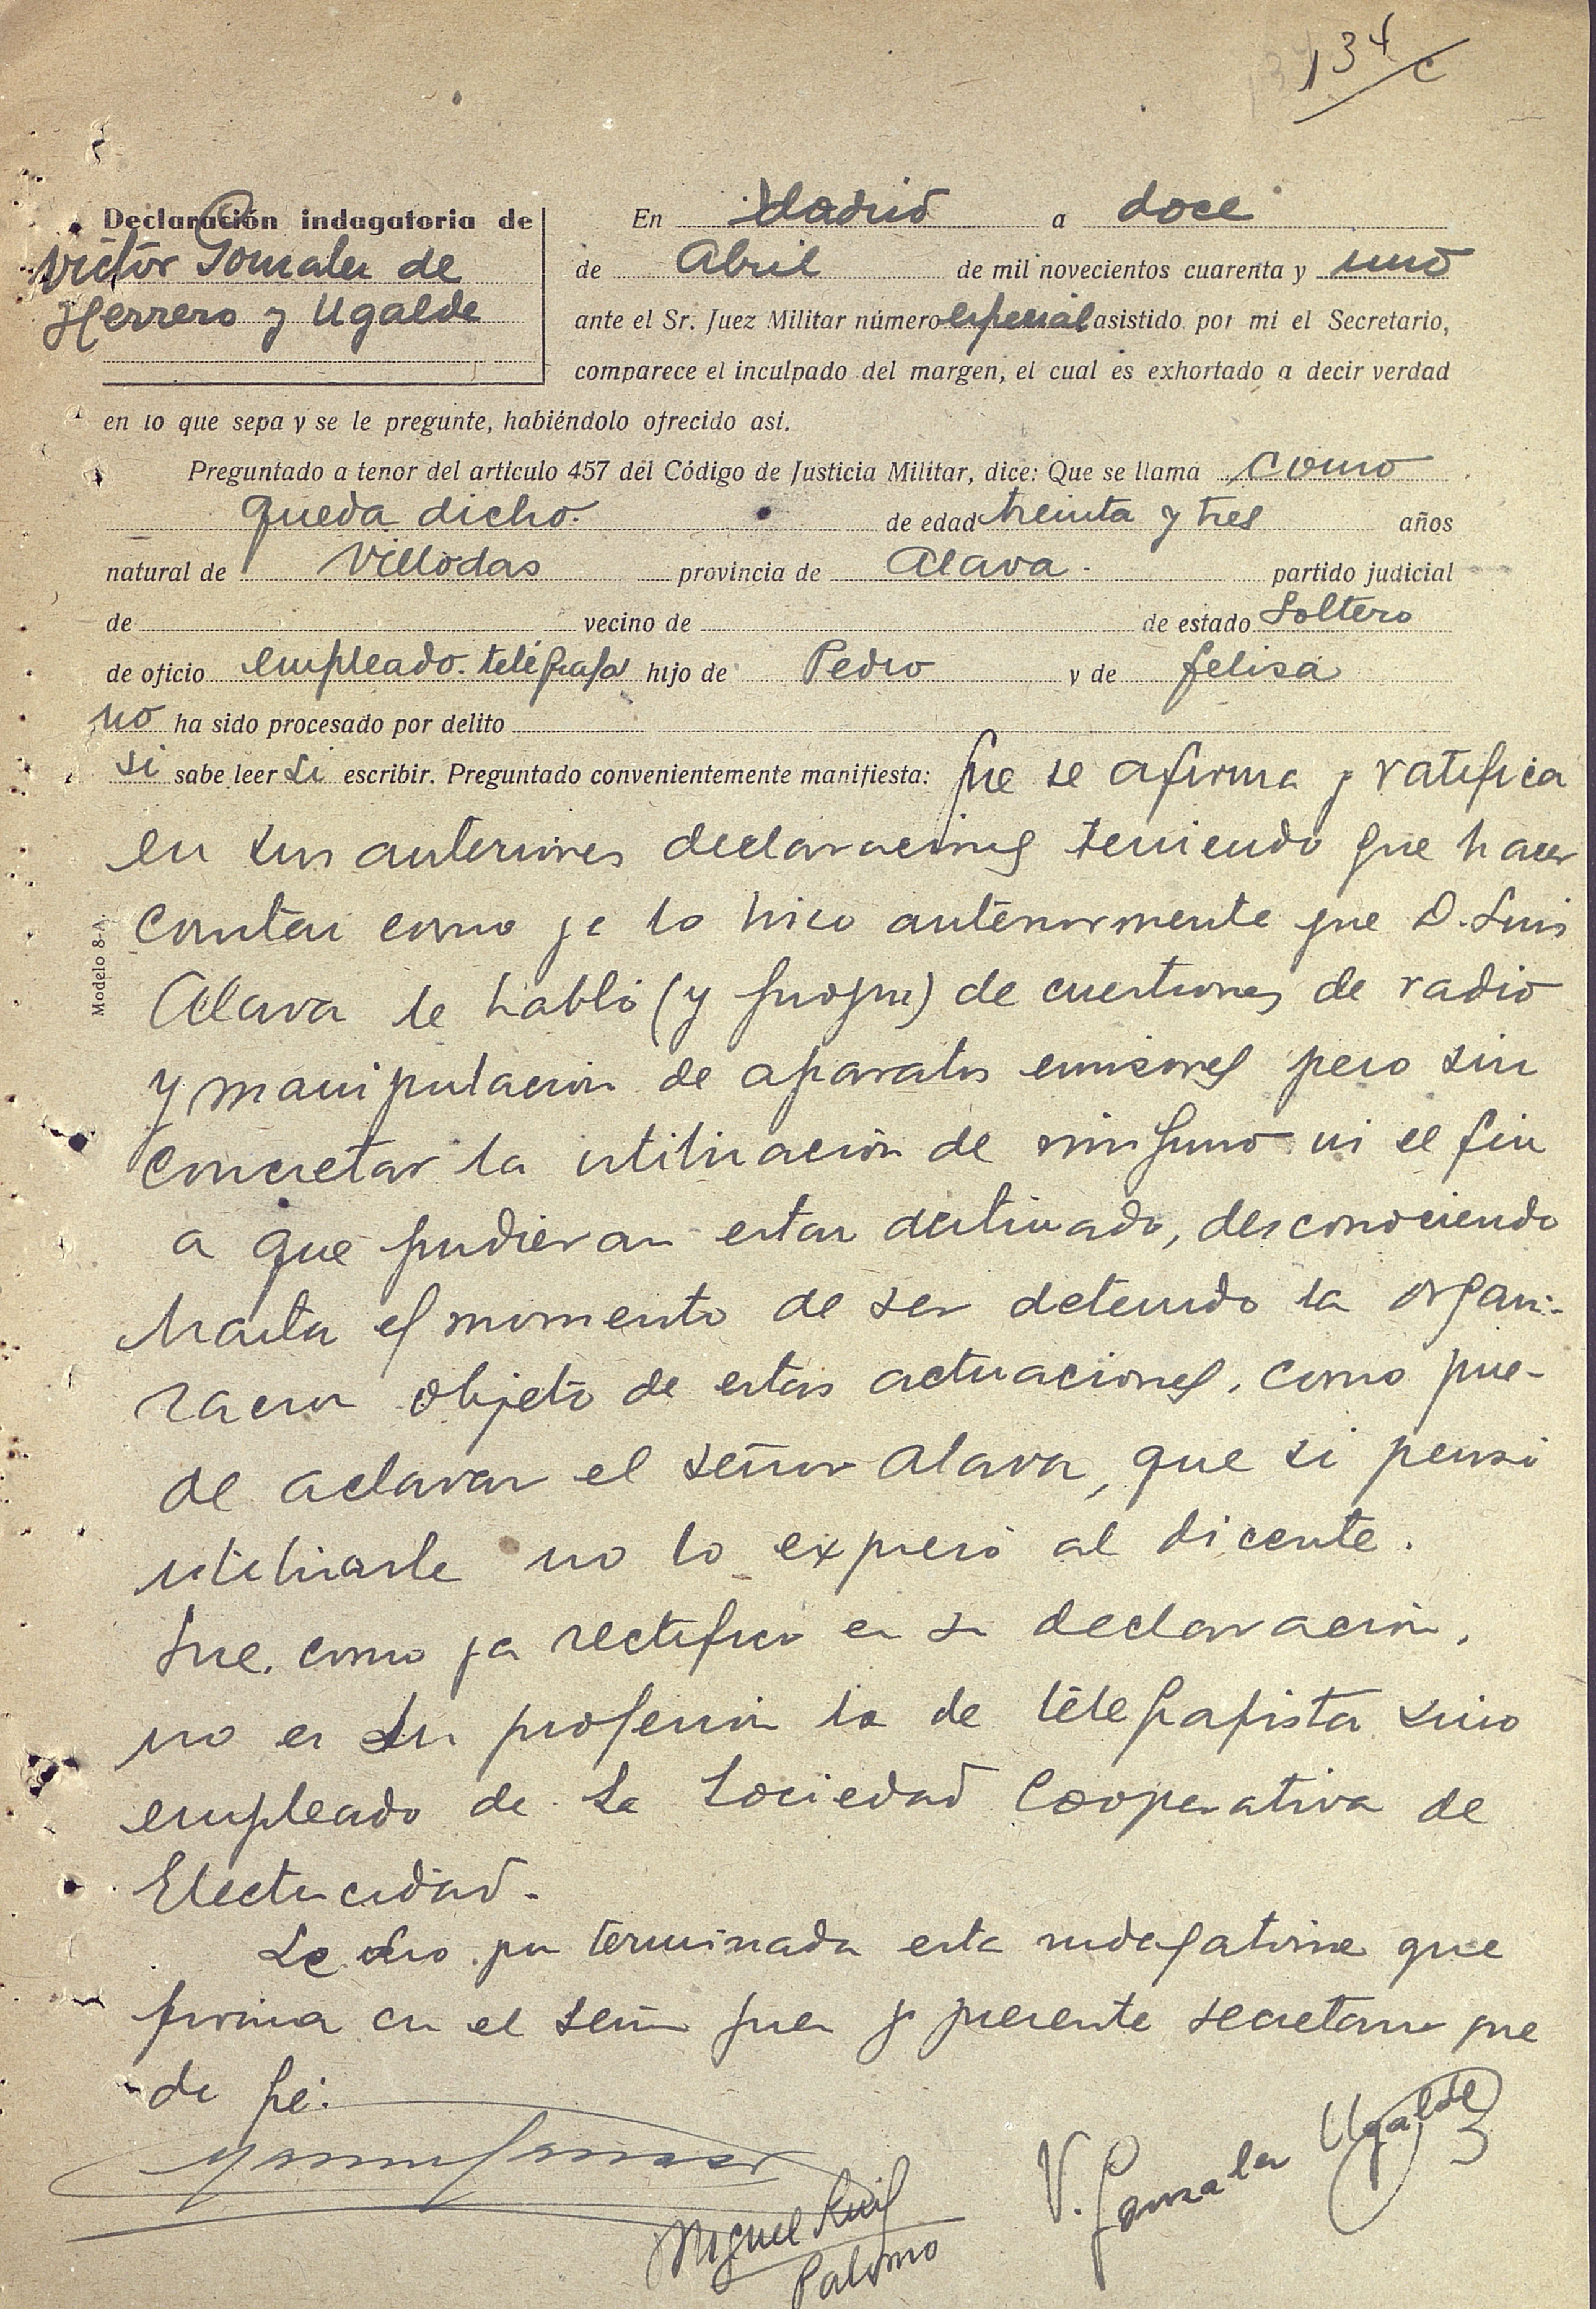 134
c
Declaración indagatoria de
Victor Gonzalez de
Herrero y Ugalde
En Madrid a doce
de Abril de mil novecientos cuarenta y uno
ante el Sr. Juez Militar número especial asistido por mi el Secretario,
comparece el inculpado del margen, el cual es exhortado a decir verdad
en lo que sepa y se le pregunte, habiéndolo ofrecido asi.
Preguntado a tenor del articulo 457 del Código de Justicia Militar, dice: Que se llama como
queda dicho. de edad treinta y tres años
natural de Villodas provincia de Alava. partido judicial
de vecino de de estado Soltero
de oficio empleado. telégrafos hijo de Pedro y de felisa
no ha sido procesado por delito
si sabe leer si escribir. Preguntado convenientemente manifiesta: que se afirma y ratifica
en sus anteriores declaraciones teniendo que hacer
constar como ya lo hizo anteriormente que D. Luis
Alava le habló (y) de cuestiones de radio
y manipulacion de aparatos emisores pero sin
concretar la utilizacion de ninguno ni el fin
a que pudieran estar destinado, desconociendo
hasta el momento de ser detenido la organi-
zacion objeto de estas actuaciones, como pue-
de aclarar el señor Alava, que si pensó
utilizarle no lo expresó al dicente.
Que. como ya rectifico en su declaracion,
no es su profesion la de telegrafista sino
empleado de la Sociedad Cooperativa de
Electricidad.
Se dio por terminada esta indagatoria que
firma con el señor juez y presente secretario que
da fé.
Miguel Ruiz
Palomo
V. Gonzalez Ugalde
Modelo 8-A.